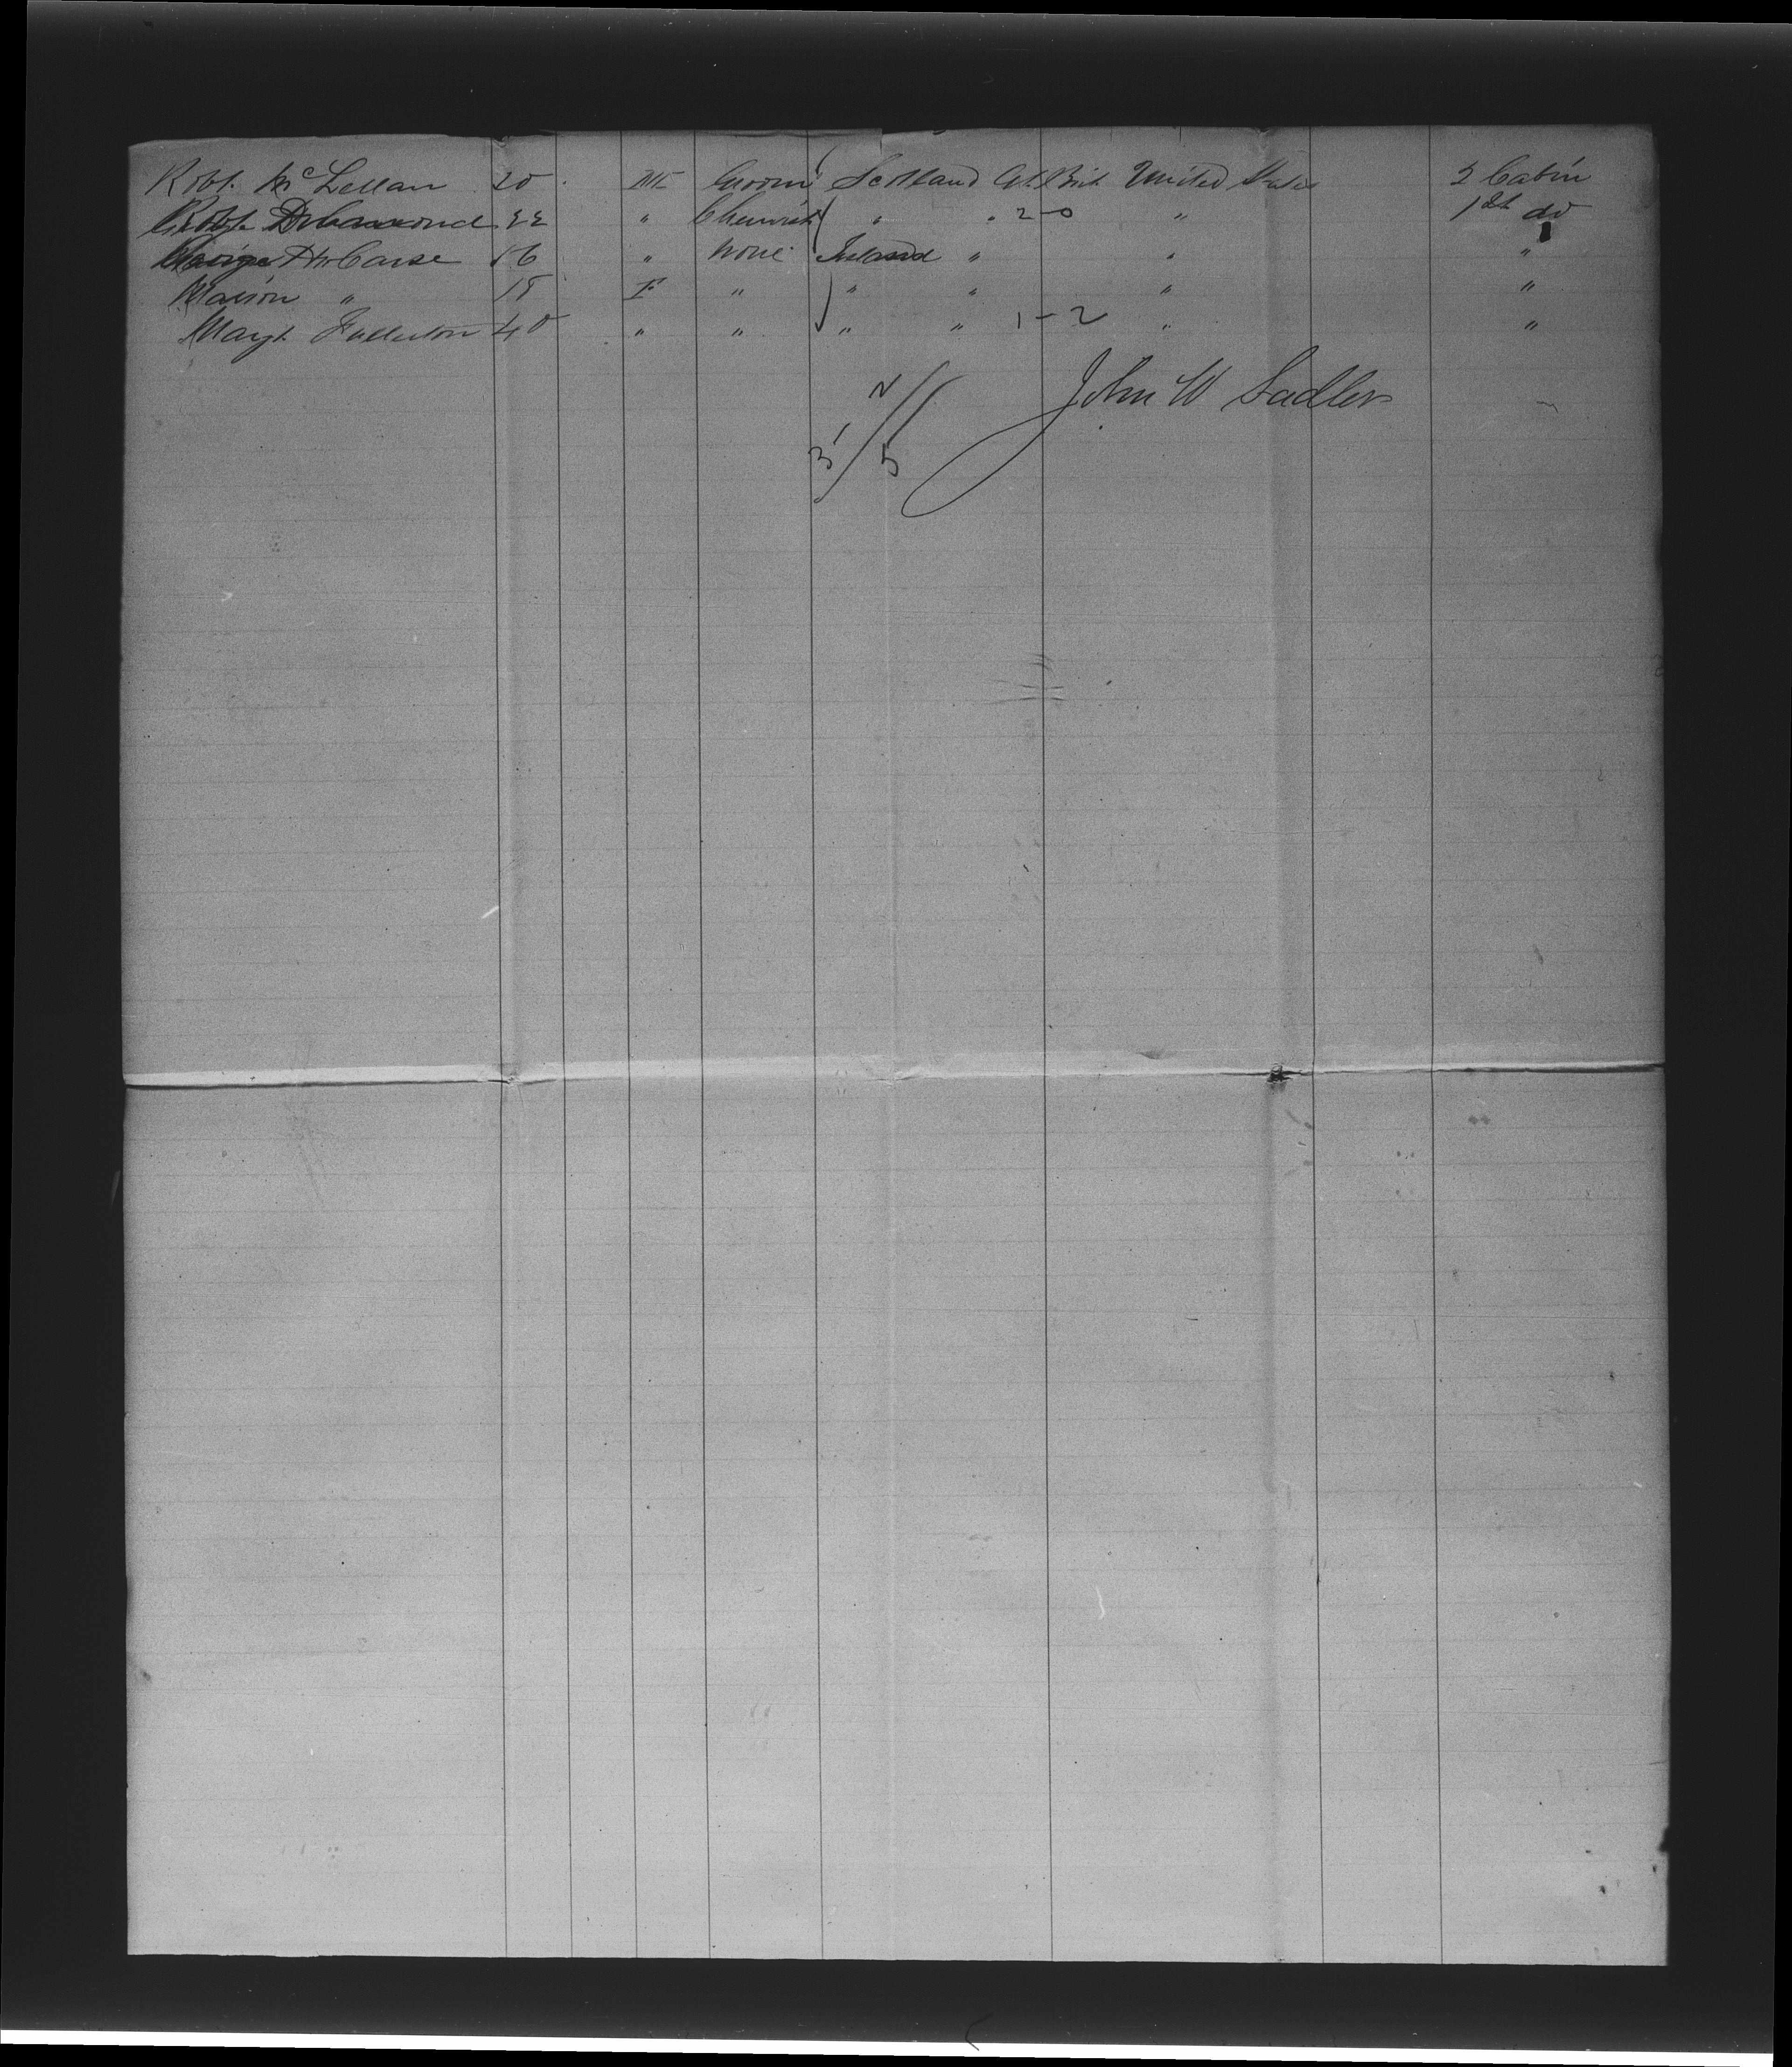 Robt. McLellan 20 M Groom Scotland Gt. Brit. United States 2 Cabin
Robt. Drummond 22 " Chemist " " 2-0 " 1st do
George McCarse 16 " None Ireland " " "
Marion " 18 F " " " " "
Margt. Fullerton 40 " " " " 1-2 " "
John W Sadler
3 2/5